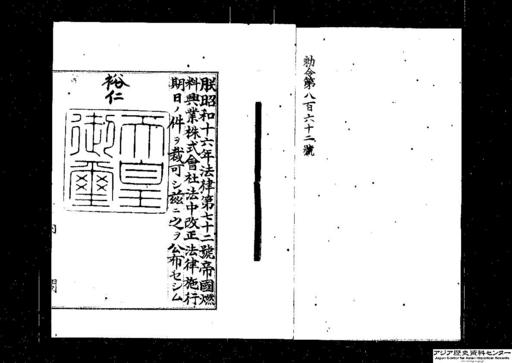 勅令第八百六十二號
朕昭和十六年法律第七十二號帝國燃
料興業株式會社法中改正法律施行
期日ノ件ヲ裁可シ茲ニ之ヲ公布セシム
裕仁
天皇
御璽
アジア歴史資料センター
Japan Center for Asian Historical Records